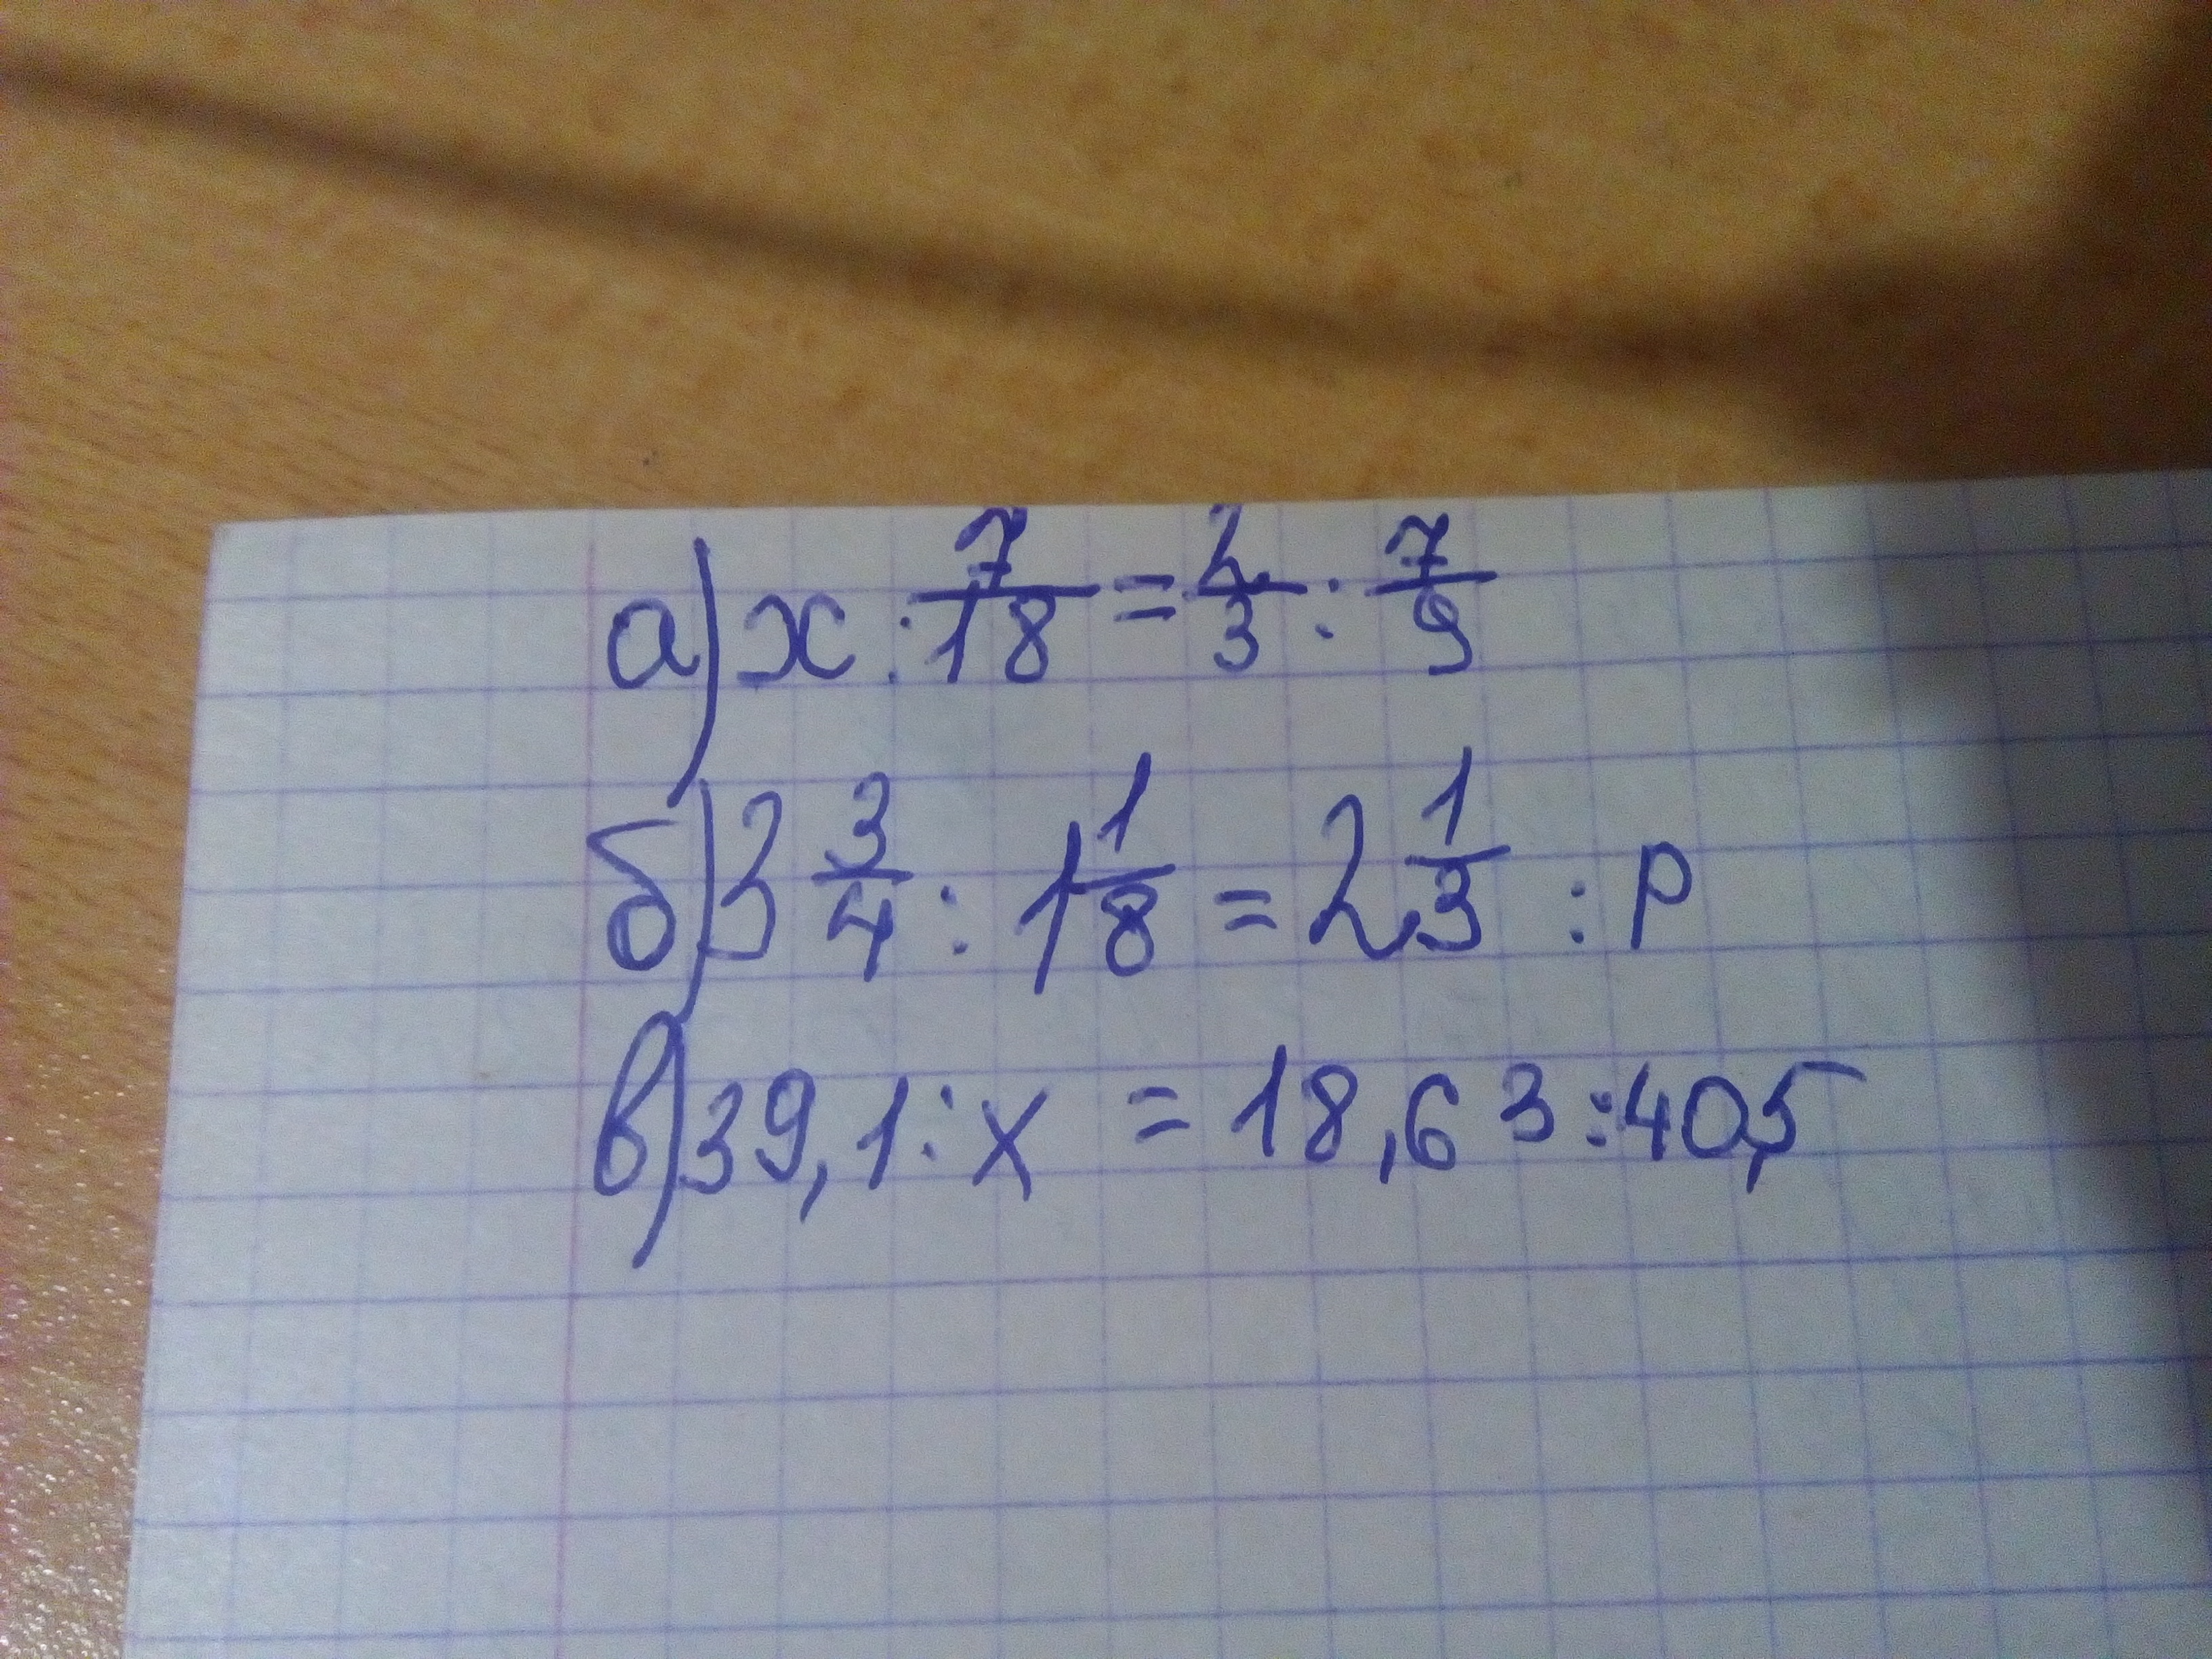 а) x : 7/18 = 2/3 : 7/9
б) 3 3/4 : 1 1/8 = 2 1/3 : p
в) 39,1 : x = 18,63 : 40,5